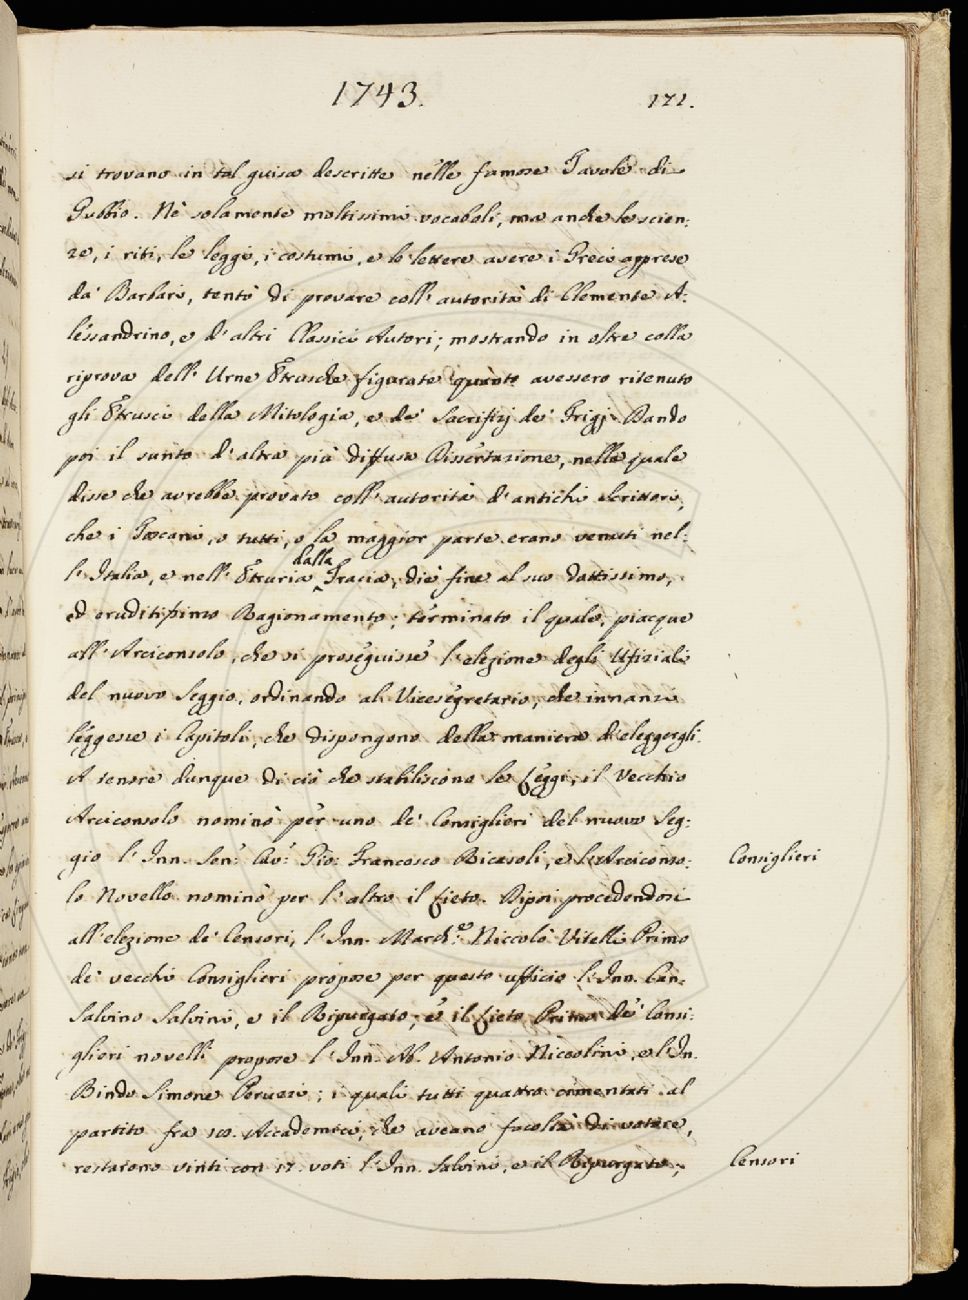 1743.
171.
si trovano in tal guisa descritte nelle famose Tavole di
Gubbio. Nè solamente moltissimi vocaboli, ma anche le scien:
ze, i riti, le leggi, i costumi, e le lettere avere i Greci apprese
da' Barbari, tentò di provare coll' autorità di Clemente A:
lessandrino, e d' altri Classici Autori; mostrando in oltre colla
riprova dell' Urne Etrusche figurate quanto avessero ritenuto
gli Etrusci della Mitologia, e de' Sacrifizj de' Frigj. Dando
poi il sunto d' altra più diffusa Dissertazione, nella quale
disse che avrebbe provato coll' autorità d' antichi Scrittori,
che i Toscani, o tutti, o la maggior parte erano venuti nel:
l' Italia, e nell' Etruria dalla Tracia, diè fine al suo dottissimo,
ed eruditissimo Ragionamento; terminato il quale, piacque
all' Arciconsolo, che si proseguisse l' elezione degli Ufiziali
del nuovo Seggio, ordinando al Vicesegretario, che innanzi
leggesse i Capitoli, che dispongono della maniera di eleggergli.
A tenore dunque di ciò che stabiliscono le Leggi, il Vecchio
Arciconsolo nominò per uno de' Consiglieri del nuovo Seg:
gio l' Inn. Sen.r Cav.r Gio: Francesco Ricasoli, e l' Arciconso:
lo Novello nominò per l' altro il Lieto. Dipoi procedendosi
all' elezione de' Censori, l' Inn. March.e Niccolò Vitelli Primo
de' vecchi Consiglieri propose per questo uffizio l' Inn. Can.
Salvino Salvini, e il Ripurgato; e il Lieto Primo de' Consi:
glieri novelli propose l' Inn. Ab. Antonio Niccolini, e l' In.
Bindo Simone Peruzzi; i quali tutti quattro cimentati al
partito fra 20. Accademici, che aveano facoltà di votare,
restarono vinti con 17. voti l' Inn. Salvini, e il Ripurgato;
Consiglieri
Censori